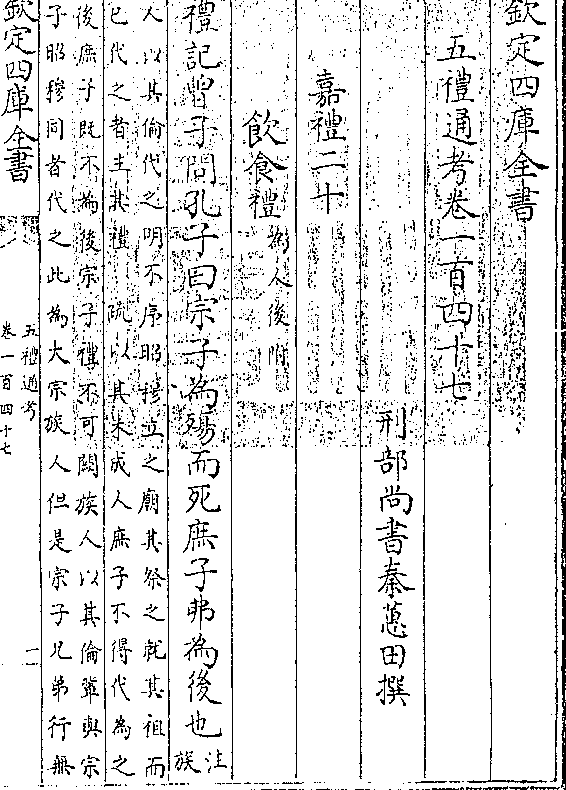 欽定四庫全書
五禮通考卷一百四十七
刑部尚書秦蕙田撰
嘉禮二十
飲食禮為人後附
禮記曾子問孔子曰宗子為殤而死庶子弗為後也注族
人以其倫代之明不序昭穆立之廟其祭之就其祖而
已代之者主其禮 疏以其未成人庶子不得代為之
後庶子既不為後宗子禮不可闕族人以其倫輩與宗
子昭穆同者代之此為大宗族人但是宗子兄弟行無
欽定四庫全書
五禮通考
卷一百四十七
一